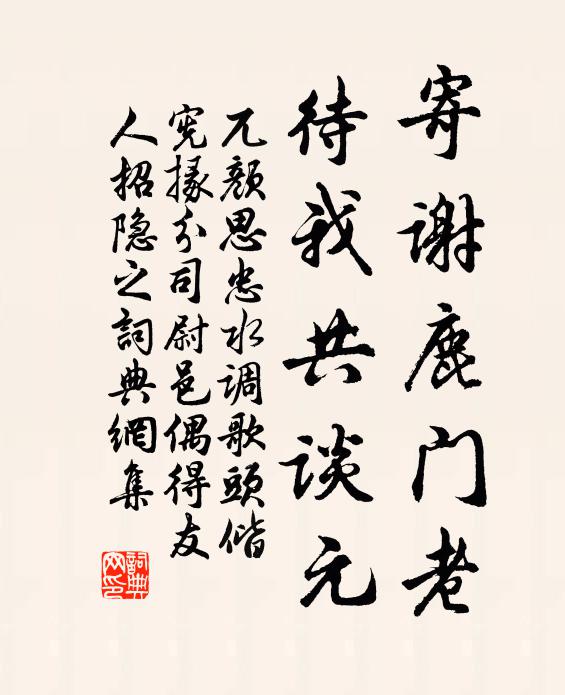 寄谢鹿门老
待我共谈元
兀颜思忠水调歌头偕
宪掾分司尉邑偶得友
人招隐之詞典網集
詞典
网印